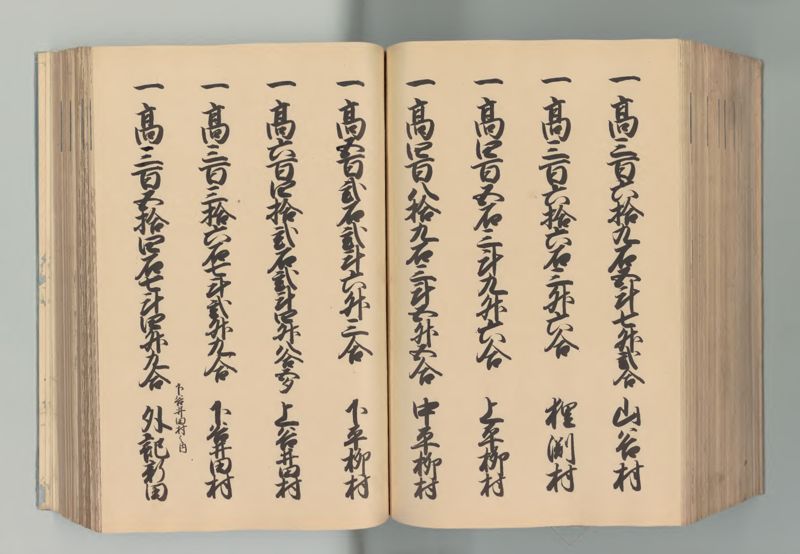 一高三百六拾九石弐斗七升弐合 山谷村
一高三百六拾六石三升六合 狸渕村
一高四百五石三斗九升六合 上平柳村
一高四百八拾九石三斗五升五合 中平柳村
一高五百弐石弐斗六升三合 下平柳村
一高六百四拾弐石弐斗四升八合 上谷井田村
一高三百三拾六石七斗弐升九合 下谷井田村
下谷井田村之内
一高三百五拾四石七斗四升九合 外記新田